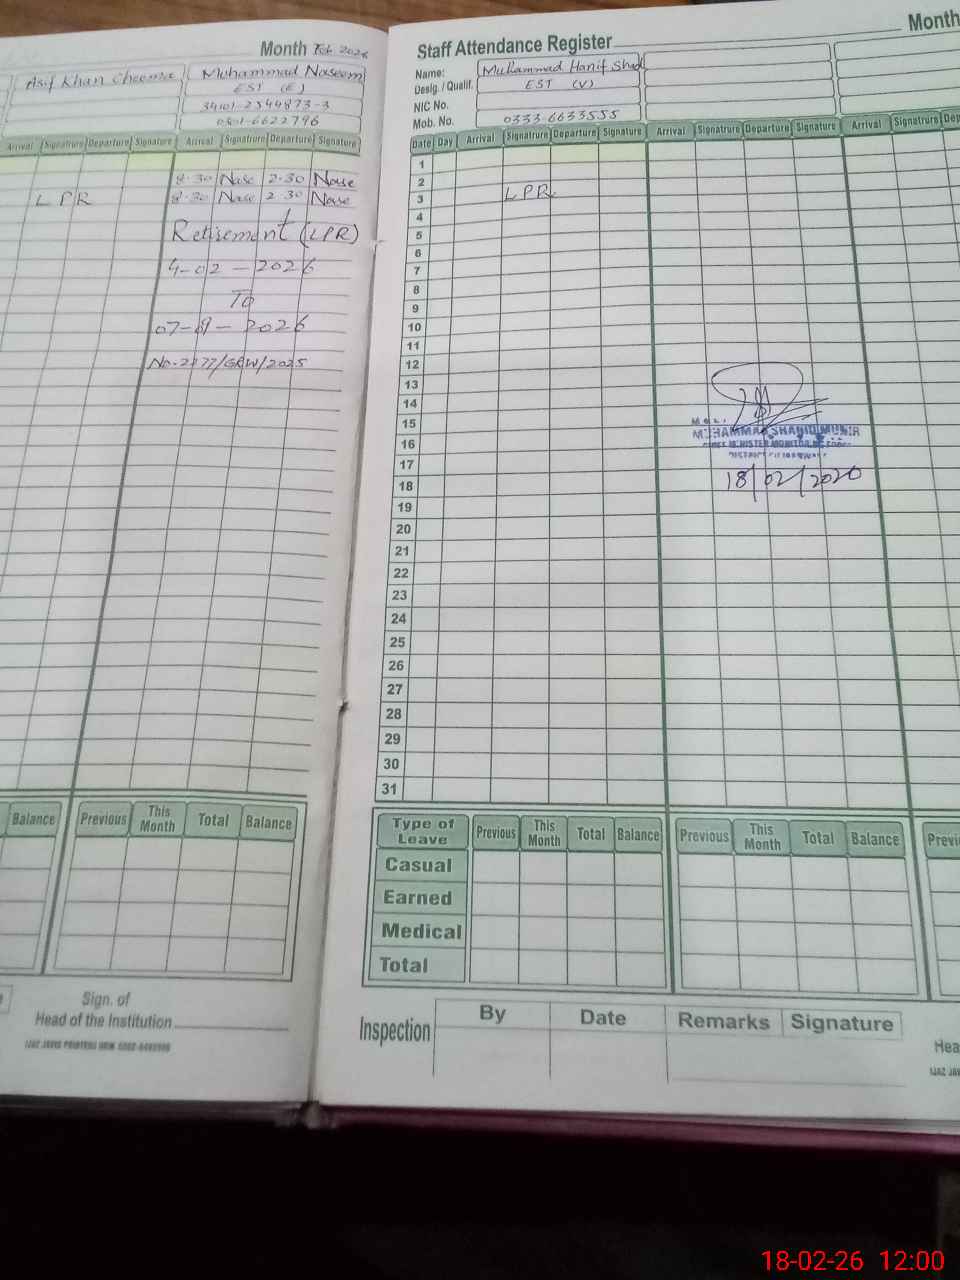 Month Feb 2026
Asif Khan Cheema
Muhammad Naseem
EST (E)
34101-2544873-3
0301-6622796
Arrival Signatrure Departure Signature Arrival Signatrure Departure Signature
8-30 Nase 2-30 Nase
LPR 8-30 Nase 2 30 Nase
Retirement (LPR)
4-02-2026
To
2026
/GRW/2025
Balance Previous This Month Total Balance
Sign. of
Head of the Institution
Staff Attendance Register Month
Name: Muhammad Hanif
Desig. / Qualif. EST (V)
NIC No.
Mob. No. 0333-6633555
Date Day Arrival Signatrure Departure Signature Arrival Signatrure Departure Signature Arrival Signatrure
1
2
3 LPR
4
5
6
7
8
9
10
11
12
13
14
15
16 MUHAMMAD SHAHID MUNIR
17
18 18/02/2020
19
20
21
22
23
24
25
26
27
28
29
30
31
Type of Leave Previous This Month Total Balance Previous This Month Total Balance
Casual
Earned
Medical
Total
Inspection By Date Remarks Signature
18-02-26 12:00